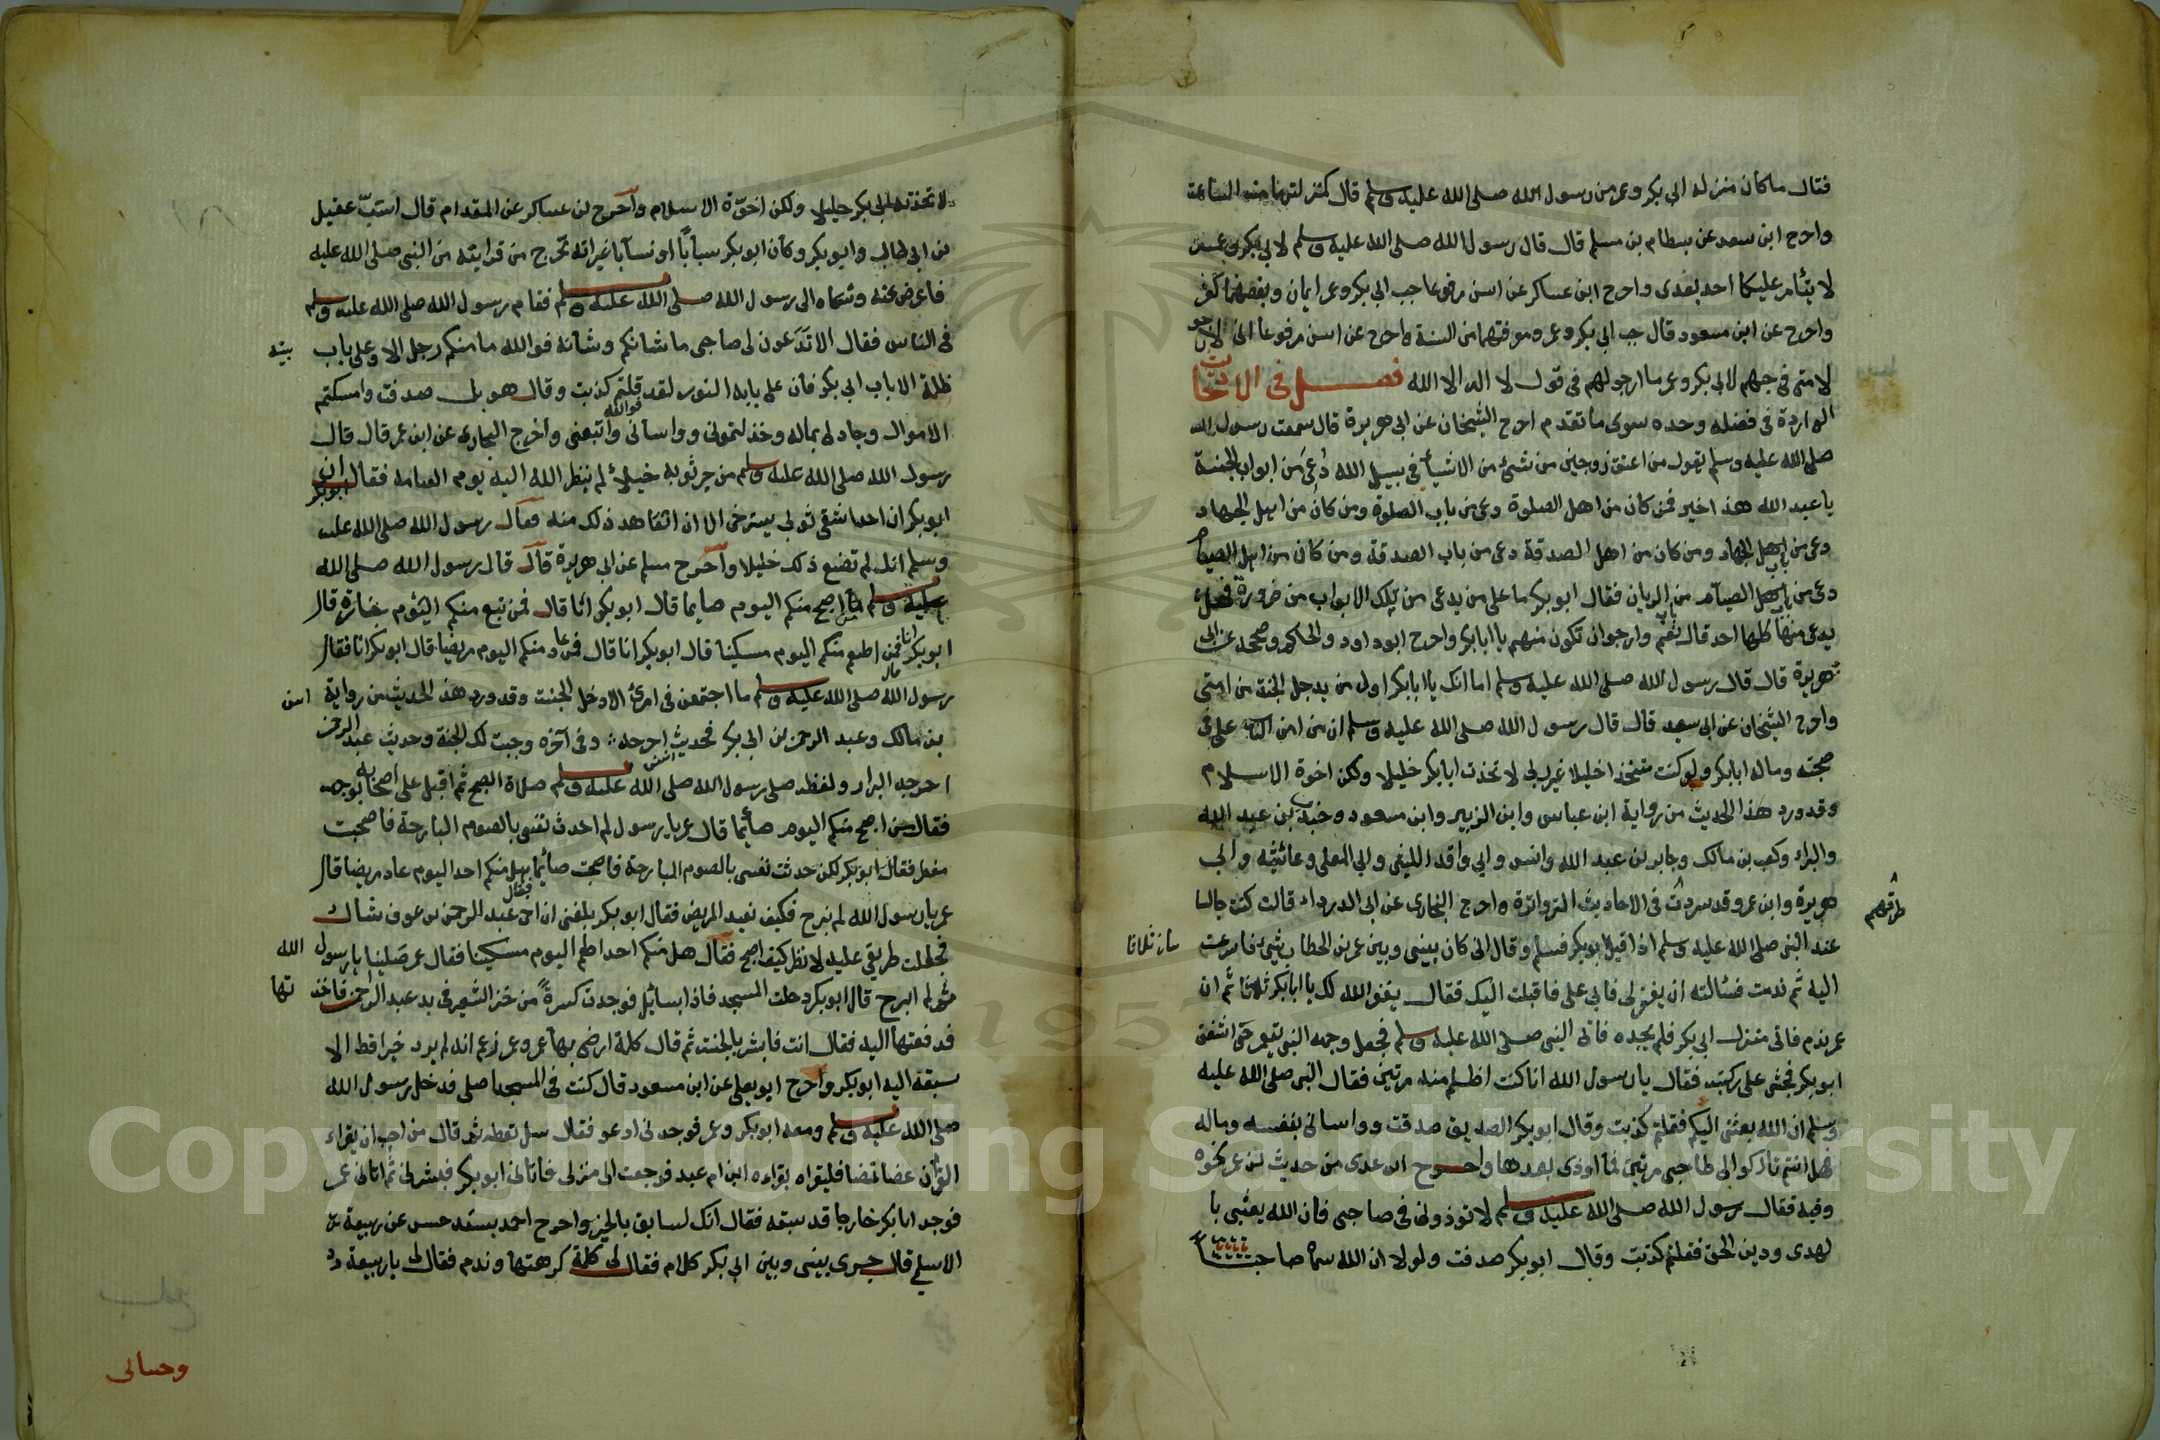 فقال ما كان منزلة ابي بكر وعمر من رسول الله صلى الله عليه وسلم قال كمنزلتهما منه الساعة
واخرج ابن سعد عن بسطام بن مسلم قال قال رسول الله صلى الله عليه وسلم لابي بكر وعمر
لا يتأمر عليكما احد بعدى واخرج ابن عساكر عن انس مرفوعا حب ابي بكر وعمر ايمان وبغضهما كفر
واخرج عن ابن مسعود قال حب ابي بكر وعمر ومعرفتهما من السنة واخرج عن انس مرفوعا انى لارجو
لامتى فى حبهم لابي بكر وعمر ما ارجو لهم فى قول لا اله الا الله فصل فى الاحاديث
الواردة فى فضله وحده سوى ما تقدم اخرج الشيخان عن ابى هريرة قال سمعت رسول الله
صلى الله عليه وسلم يقول من انفق زوجين من شئ من الاشيأ فى سبيل الله دُعِىَ من ابواب الجنة
يا عبد الله هذا خير فمن كان من اهل الصلوة دعى من باب الصلوة ومن كان من اهل الجهاد
دعى من باب اهل الجهاد ومن كان من اهل الصدقة دعى من باب الصدقة ومن كان من اهل الصيام
دعى من باب اهل الصيام من الريان فقال ابو بكر ما على من يدعى من تلك الابواب من ضرورة فهل
يدعى منها كلها احد قال نعم وارجو ان تكون منهم يا ابا بكر واخرج ابو داود والحاكم وصححه عن ابى
هريرة قال قال رسول الله صلى الله عليه وسلم اما انك يا ابا بكر اول من يدخل الجنة من امتى
واخرج الشيخان عن ابى سعيد قال قال رسول الله صلى الله عليه وسلم ان من امن الناس على فى
صحبته وماله ابا بكر ولو كنت متخذا خليلا غير ربى لاتخذت ابا بكر خليلا ولكن اخوة الاسلام
وقد ورد هذا الحديث من رواية ابن عباس وابن الزبير وابن مسعود وجندب بن عبد الله
والبراء وكعب بن مالك وجابر بن عبد الله وانس وابي واقد الليثى وابي المعلى وعائشه وابي
هريرة وابن عمر وقد سردت فى الاحاديث المتواترة واخرج البخارى عن ابى الدرداء قالت كنت جالسا
طرقهم
عند النبى صلى الله عليه وسلم اذ اقبل ابو بكر فسلم وقال انى كان بينى وبين عمر بن الخطاب شئ فاسرعت
اليه ثم ندمت فسالته ان يغفر لى فابى على فاقبلت اليك فقال يغفر الله لك يا ابا بكر ثلاثا ثم ان
عمر ندم فاتى منزل ابى بكر فلم يجده فاتى النبى صلى الله عليه وسلم فجعل وجه النبى يتمعر حتى اشفق
ابو بكر فجثى على ركبتيه فقال يا رسول الله انا كنت اظلم منه مرتين فقال النبى صلى الله عليه
وسلم ان الله بعثنى اليكم فقلتم كذبت وقال ابو بكر الصديق صدقت وواسانى بنفسه وماله
فهل انتم تاركوا لى صاحبى مرتين فما اوذى بعدها واخرج ابن عدى من حديث ابن عمر نحوه
وفيه فقال رسول الله صلى الله عليه وسلم لا توذونى فى صاحبى فان الله بعثنى با
لهدى ودين الحق فقلتم كذبت وقال ابو بكر صدقت ولولا ان الله سماه صاحبا
لاتخذته ابى بكر خليلا ولكن اخوّة الاسلام واخرج ابن عساكر عن المقدام قال استبّ عقيل
بن ابى طالب وابو بكر وكان ابو بكر سبابًا او نسابا غير انه تحرج من قرابته من النبى صلى الله عليه
فاعرض عنه وشكاه الى رسول الله صلى الله عليه وسلم فقام رسول الله صلى الله عليه وسلم
فى الناس فقال الا تَدَعون لى صاحبى ما شانكم وشانه فوالله ما منكم رجل الا وعلى باب
بيته
ظلمة الا باب ابى بكر فان على بابه النور لقد قلتم كذبت وقال هو بل صدقت وامسكتم
الاموال وجاد لى بماله وخذلتمونى وواسانى واتبعنى واخرج البخارى عن ابن عمر قال قال
رسول الله صلى الله عليه وسلم من جر ثوبه خيلاء لم ينظر الله اليه يوم القيامه فقال
ابو بكر ان احد شقى ثوبى يسترخى الا ان اتعاهد ذلك منه فقال رسول الله صلى الله عليه
وسلم انك لم تصنع ذلك خيلا واخرج مسلم عن ابى هريرة قال قال رسول الله صلى الله
عليه وسلم من اصبح منكم اليوم صايما قال ابو بكر انا قال فمن تبع منكم اليوم جنازة قال
ابو بكر انا فمن اطعم منكم اليوم مسكينا قال ابو بكر انا قال فمن عاد منكم اليوم مريضا قال ابو بكر انا فقال
رسول الله صلى الله عليه وسلم ما اجتمعن فى امرئ الا دخل الجنت وقد ورد هذا الحديث من رواية انس
بن مالك وعبد الرحمن بن ابى بكر فحديث انس اخرجه وفى آخره وجبت لك الجنة وحديث عبد الرحمن
اخرجه البزار ولفظه صلى رسول الله صلى الله عليه وسلم صلاة الصبح ثم اقبل على اصحابه بوجهه
فقال من اصبح منكم اليوم صائما قال عمر يا رسول لم احدث نفسى بالصوم البارحة فاصبحت
مفطرا فقال ابو بكر لكن حدثت نفسى بالصوم البارحة فاصبحت صائما فقال هل منكم احد اليوم عاد مريضا قال
عمر يا رسول الله لم نبرح فكيف نعيد المريض فقال ابو بكر بلغنى ان اخى عبد الرحمن بن عوف شاك
فجعلت طريقى عليه لانظر كيف اصبح فقال هل منكم احد اطعم اليوم مسكينا فقال عمر صلينا يا رسول الله
ثم لم نبرح قال ابو بكر دخلت المسجد فاذا بسائل فوجدت كسرةً من خبز الشعير فى يد عبد الرحمن فاخذتها
فدفعتها اليه فقال انت فابشر بالجنت ثم قال كلمة ارضى بها عمر وعمر زعم انه لم يرد خيرا قط الا
سبقه اليه ابو بكر واخرج ابو يعلى عن ابن مسعود قال كنت فى المسجد اصلى فدخل رسول الله
صلى الله عليه وسلم ومعه ابو بكر وعمر فوجدنى ادعو فقال سل تعطه ثم قال من احب ان يقراء
القرآن غضا فليقراه بقراءه ابن ام عبد فرجعت الى منزلى فاتانى ابو بكر فبشرنى ثم اتانى عمر
فوجد ابا بكر خارجا قد سبقه فقال انك لسابق بالخير واخرج احمد بسند حسن عن ربيعة
الاسلمى قال جرى بينى وبين ابى بكر كلام فقال لى كلمة كرهتها وندم فقال لى يا ربيعة رد
وحسانى
Copyright © King Saud University
1957